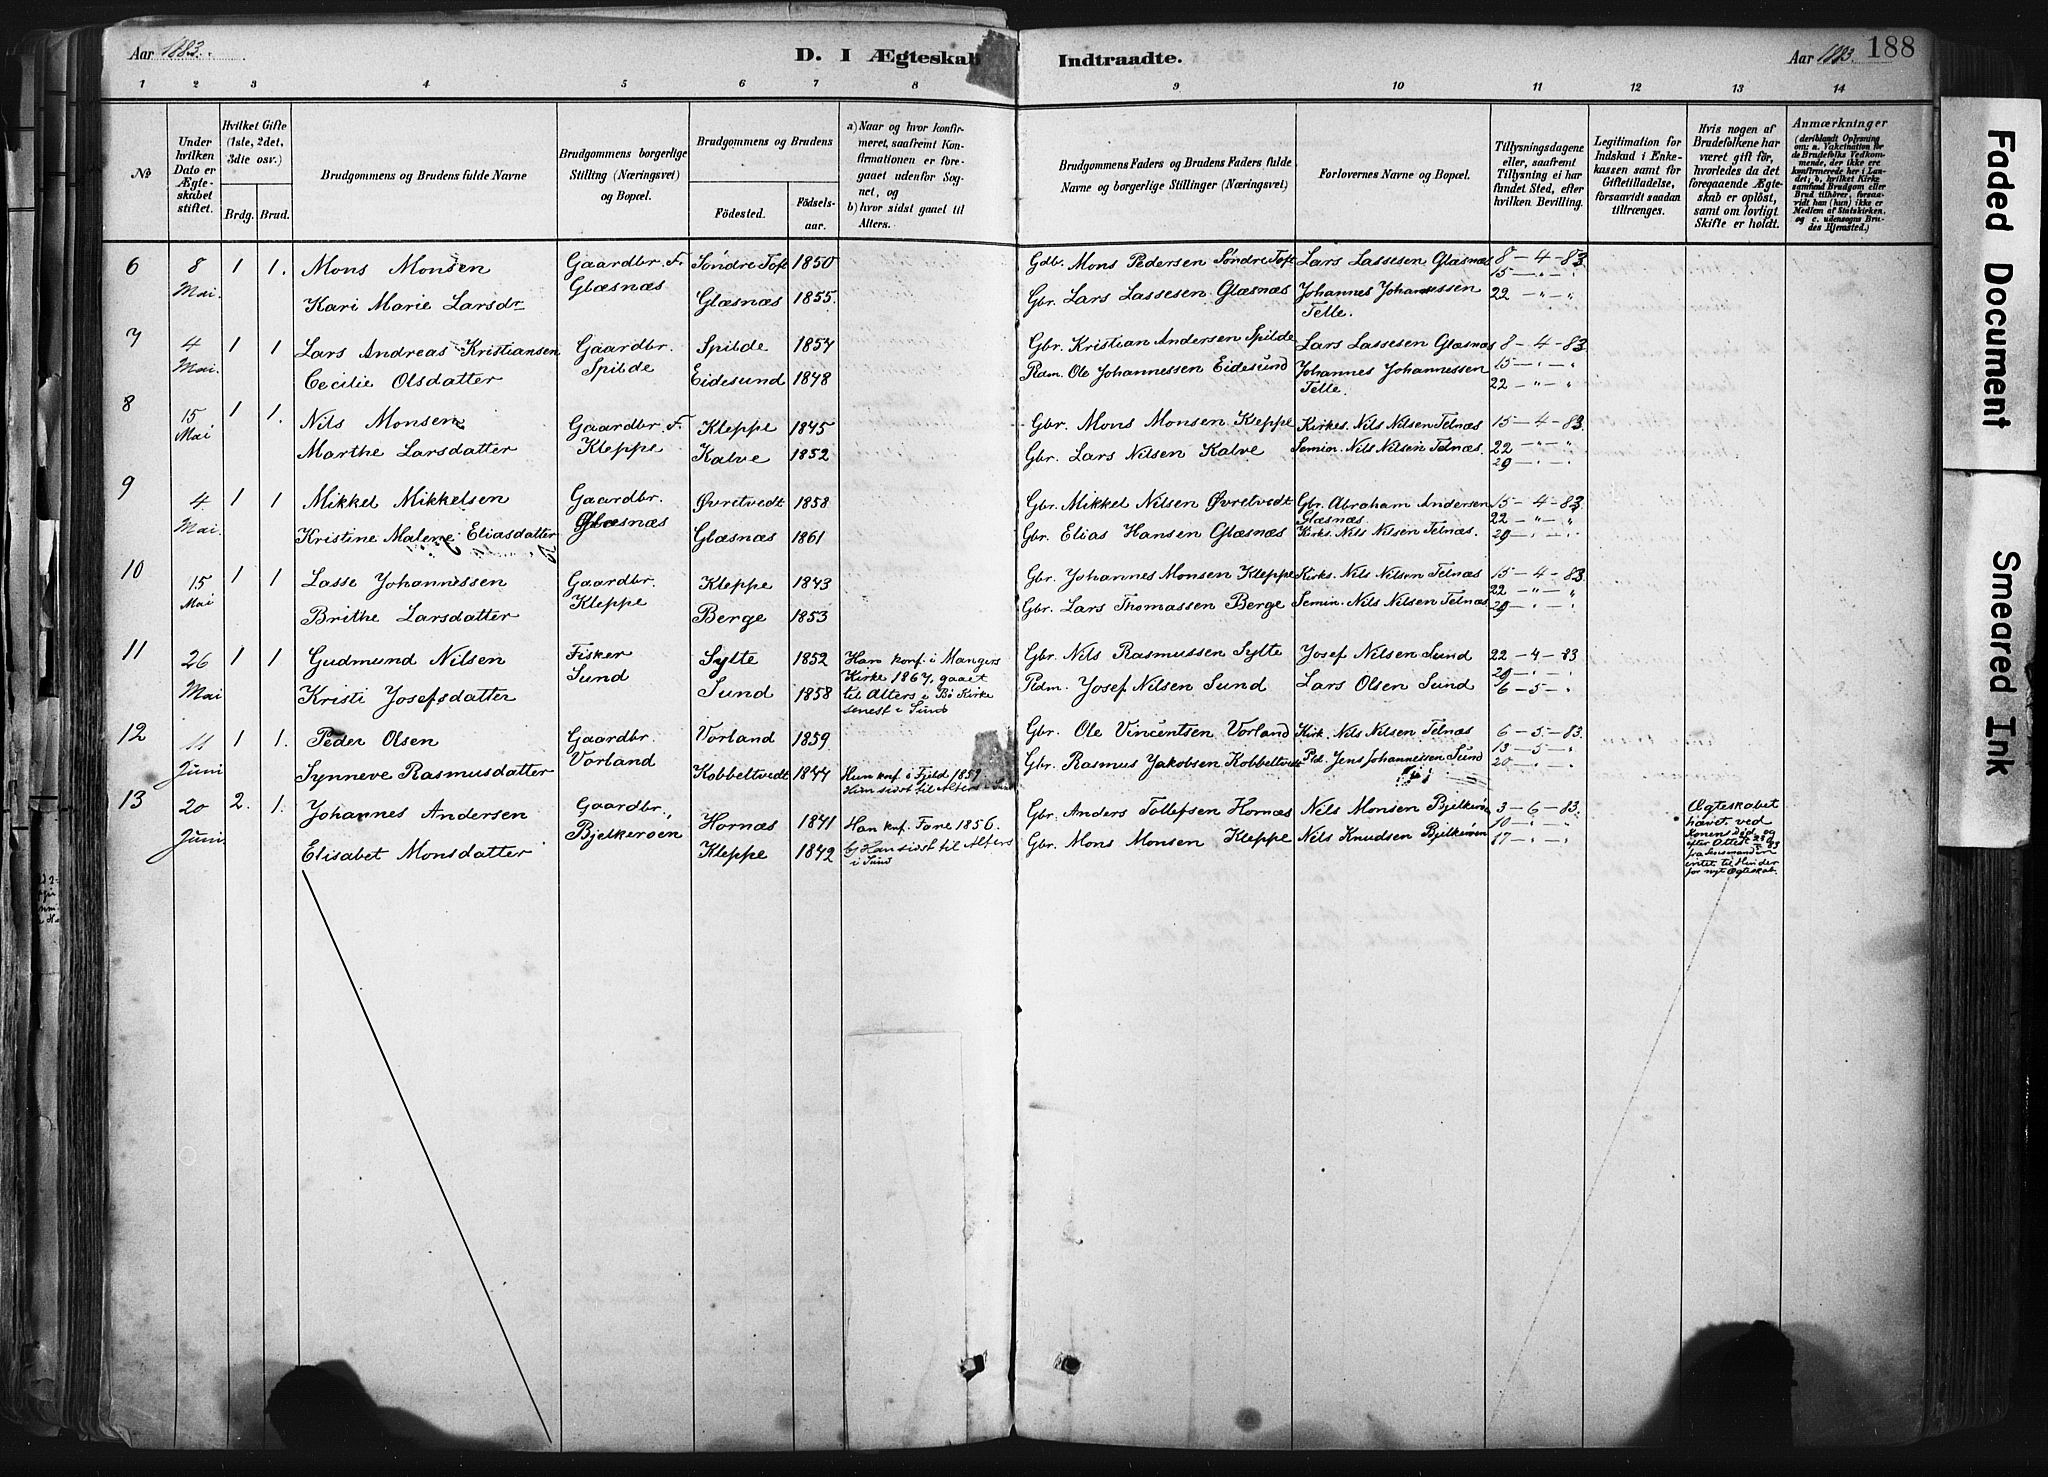 Aar 1883.
D. I Ægteskab Indtraadte.
Aar 1883.
188
1 2 3 4 5 6 7 8 9 10 11 12 13 14
No
Under hvilken Dato er Ægteskabet stiftet.
Hvilket Gifte (1ste, 2det, 3die osv.)
Brdg. Brud.
Brudgommens og Brudens fulde Navne
Brudgommens borgerlige Stilling (Næringsvei) og Bopæl.
Brudgommens og Brudens
Födested. Födselsaar.
a) Naar og hvor konfirmeret, saafremt Konfirmationen er foregaaet udenfor Sognet, og
b) hvor sidst gaaet til Alters.
Brudgommens Faders og Brudens Faders fulde Navne og borgerlige Stillinger (Næringsvei).
Forlovernes Navne og Bopæl.
Tillysningsdagene eller, saafremt Tillysning ei har fundet Sted, efter hvilken Bevilling.
Legitimation for Indskud i Enkekassen samt for Giftetilladelse, forsaavidt saadan tiltrænges.
Hvis nogen af Brudefolkene har været gift før, hvorledes da det foregaaende Ægteskab er oplöst, samt om lovligt Skifte er holdt.
Anmærkninger
(deriblandt Oplysning om: a. Vakcination for de Brudefolks Vedkommende, der ikke ere konfirmerede her i Landet; b. hvilket Kirkesamfund Brudgom eller Brud tilhörer, forsaavidt han (hun) ikke er Medlem af Statskirken, og c. udensogns Brudes Hjemsted.)
6 8 Mai. 1 1. Mons Monsen Gaardbr. F. Glæsnæs Söndre Toft 1850 Gdb. Mons Pedersen Söndre Toft Lars Lassesen Glæsnæs 8 - 4 - 83
15 - " - "
Kari Marie Larsdr Glæsnæs 1855. Gbr. Lars Lassesen Glæsnæs Johannes Johannessen Telle. 22 - " - "
7 4 Mai. 1 1 Lars Andreas Kristiansen Gaardbr. Spilde Spilde 1857 Gbr. Kristian Andersen Spilde Lars Lassesen Glæsnæs 8 - 4 - 83
15 - " - "
Cecilie Olsdatter Eidesund 1848 Pldm. Ole Johannessen Eidesund Johannes Johannessen Telle. 22 - " - "
8 15 Mai 1 1. Nils Monsen Gaardbr. F. Kleppe Kleppe 1845 Gbr. Mons Monsen Kleppe Kirkes. Nils Nilsen Telnæs 15 - 4 - 83
22 - " - "
Marthe Larsdatter Kalve 1852 Gbr. Lars Nilsen Kalve Semin. Nils Nilsen Telnæs. 29 - " - "
9 4 Mai. 1 1 Mikkel Mikkelsen Gaardbr. Glæsnæs Øvretvedt 1858 Gbr. Mikkel Nilsen Øvretvedt Gbr. Abraham Andersen Glæsnæs 15 - 4 - 83
22 - " - "
Kristine Malene Eliasdatter Glæsnæs 1861 Gbr. Elias Hansen Glæsnæs Kirks. Nils Nilsen Telnæs. 29 - " - "
10 15 Mai 1 1 Lasse Johannessen Gaardbr. Kleppe Kleppe 1843 Gbr. Johannes Monsen Kleppe Kirks. Nils Nilsen Telnæs 15 - 4 - 83
22 - " - "
Brithe Larsdatter Berge 1853 Gbr. Lars Thomassen Berge Semin. Nils Nilsen Telnæs 29 - " - "
11 26 Mai 1 1 Gudmund Nilsen Fisker Sund Sylte 1852 Han konf. i Mangers Kirke 1867. gaaet til Alters i Bö Kirke senest i Sund Gbr. Nils Rasmussen Sylte Josef Nilsen Sund 22 - 4 - 83
29 - " - "
Kristi Josefsdatter Sund 1858 Pldm. Josef Nilsen Sund Lars Olsen Sund 6 - 5 - "
12 11 Juni 1 1. Peder Olsen Gaardbr. Vorland Vorland 1859. Gbr. Ole Vincentsen Vorland Kirk. Nils Nilsen Telnæs 6 - 5 - 83.
13 - 5 - "
Synneve Rasmusdatter Kobbeltvedt 1844 Hun knf. i Fjeld 1859 Hun sidst til Alters i Sund Gbr. Rasmus Jakobsen Kobbeltvedt Pld. Jens Johannessen Sund 20 - " - "
13 20 Juni 2. 1. Johannes Andersen Gaardbr. Bjelkeröen Hornæs 1841 Han knf. Fane 1856. Gbr. Anders Tollefsen Hornæs Nils Monsen Bjelkeröen 3 - 6 - 83. Ægteskabet hævet ved Konens Död, og efter Attest fra Lensmanden intet til Hinder for nyt Ægteskab.
10 - " - "
Elisabet Monsdatter Kleppe 1842 b) Han sidst til Alters i Sund Gbr. Mons Monsen Kleppe Nils Knudsen Bjelkeröen 17 - " - "
Faded Document
Smeared Ink